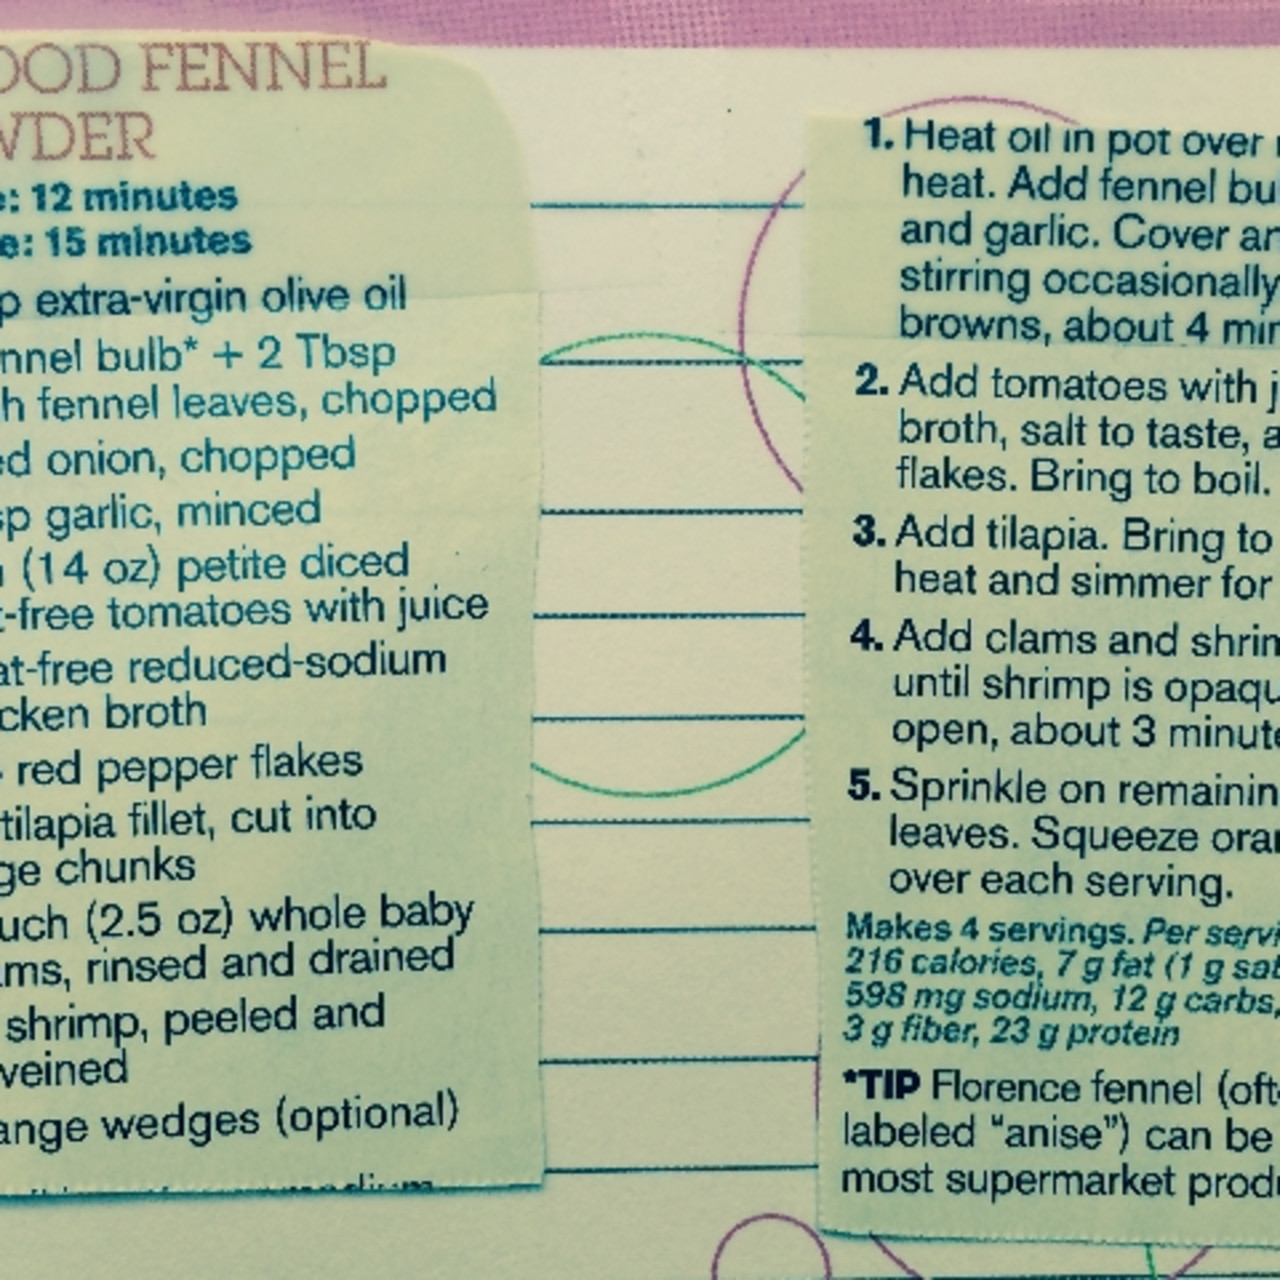 OOD FENNEL
WDER
e: 12 minutes
e: 15 minutes
p extra-virgin olive oil
nnel bulb* + 2 Tbsp
h fennel leaves, chopped
ed onion, chopped
sp garlic, minced
(14 oz) petite diced
t-free tomatoes with juice
at-free reduced-sodium
cken broth
red pepper flakes
tilapia fillet, cut into
ge chunks
uch (2.5 oz) whole baby
ms, rinsed and drained
shrimp, peeled and
veined
ange wedges (optional)
1. Heat oil in pot over
heat. Add fennel bu
and garlic. Cover an
stirring occasionally
browns, about 4 min
2. Add tomatoes with j
broth, salt to taste, a
flakes. Bring to boil.
3. Add tilapia. Bring to
heat and simmer for
4. Add clams and shrim
until shrimp is opaqu
open, about 3 minute
5. Sprinkle on remainin
leaves. Squeeze oran
over each serving.
Makes 4 servings. Per servi
216 calories, 7 g fat (1 g sat
598 mg sodium, 12 g carbs,
3 g fiber, 23 g protein
*TIP Florence fennel (oft-
labeled "anise") can be
most supermarket produ